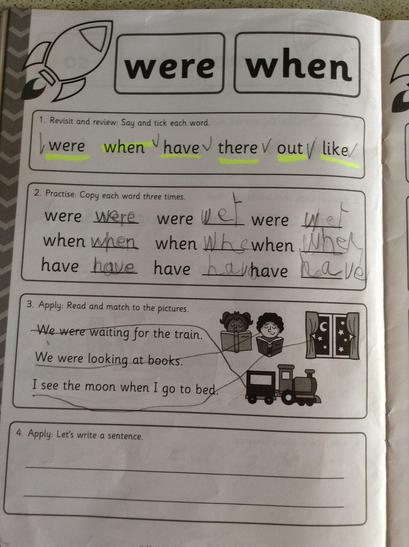 were when
1. Revisit and review: Say and tick each word.
were when have there out like
2. Practise: Copy each word three times.
were were were wet were wet
when when when whe when when
have have have hav have have
3. Apply: Read and match to the pictures.
We were waiting for the train.
We were looking at books.
I see the moon when I go to bed.
4. Apply: Let's write a sentence.